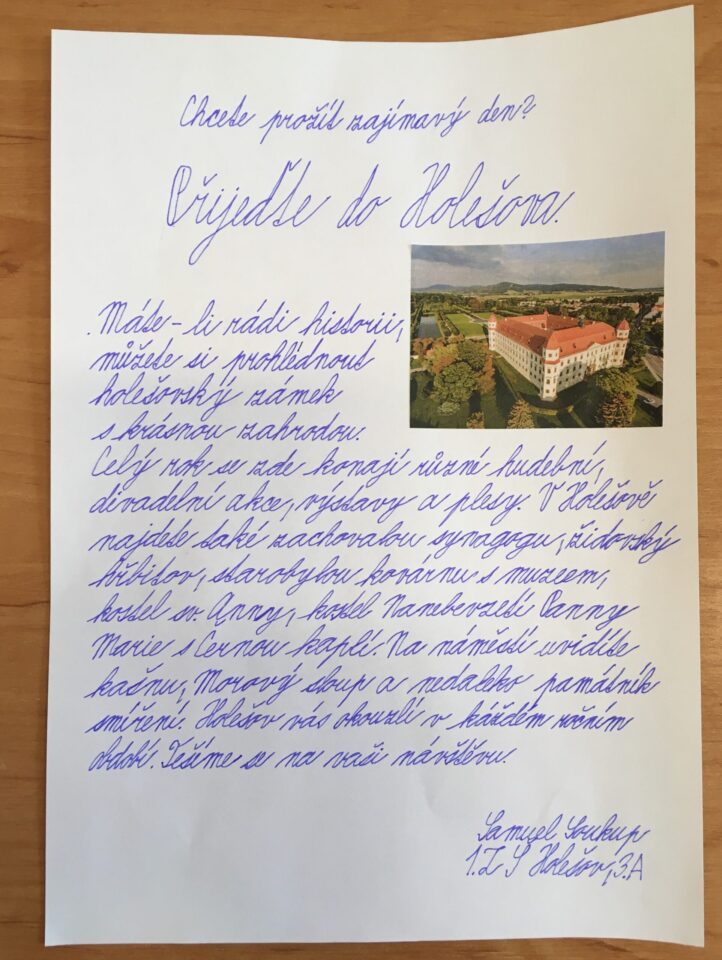 Chcete prožít zajímavý den?
Přijeďte do Holešova.
Máte-li rádi historii,
můžete si prohlédnout
holešovský zámek
s krásnou zahradou.
Celý rok se zde konají různé hudební,
divadelní akce, výstavy a plesy. V Holešově
najdete také zachovalou synagogu, židovský
hřbitov, starobylou kovárnu s muzeem,
kostel sv. Anny, kostel Nanebevzetí Panny
Marie s Černou kaplí. Na náměstí uvidíte
kašnu, Morový sloup a nedaleko památník
smíření. Holešov vás okouzlí v každém ročním
období. Těšíme se na vaši návštěvu.
Samuel Soukup
1. Z Š Holešov, 3.A